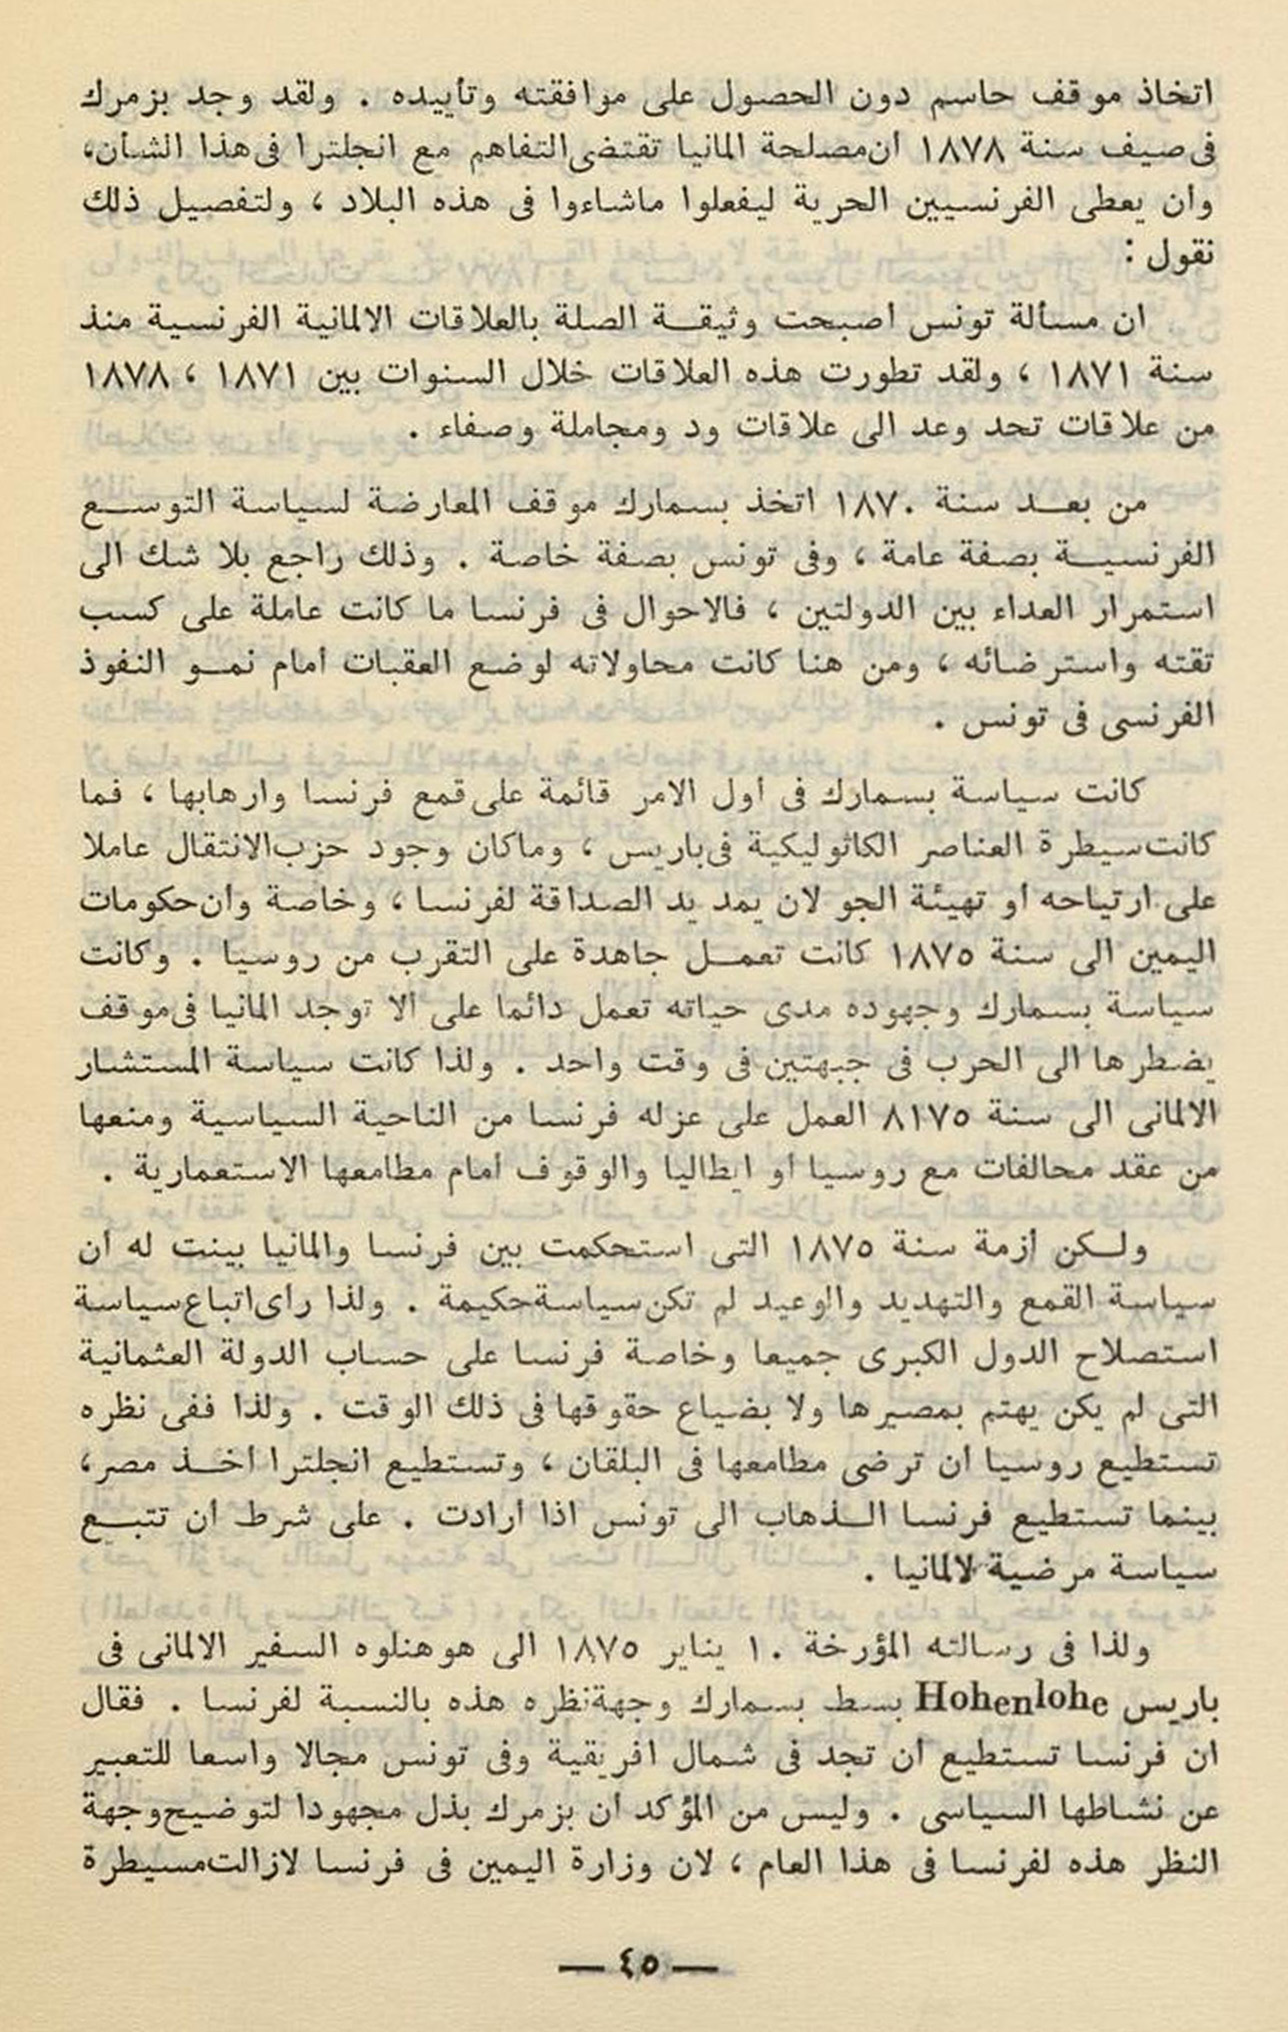 اتخاذ موقف حاسم دون الحصول على موافقته وتأييده . ولقد وجد بزمرك
فى صيف سنة ١٨٧٨ ان مصلحة المانيا تقتضى التفاهم مع انجلترا فى هذا الشأن،
وان يعطى الفرنسيين الحرية ليفعلوا ماشاءوا فى هذه البلاد ، ولتفصيل ذلك
نقول :
ان مسألة تونس اصبحت وثيقة الصلة بالعلاقات الالمانية الفرنسية منذ
سنة ١٨٧١ ، ولقد تطورت هذه العلاقات خلال السنوات بين ١٨٧١ ، ١٨٧٨
من علاقات تحد وعد الى علاقات ود ومجاملة وصفاء .
من بعد سنة ١٨٧٠ اتخذ بسمارك موقف المعارضة لسياسة التوسع
الفرنسية بصفة عامة ، وفى تونس بصفة خاصة . وذلك راجع بلا شك الى
استمرار العداء بين الدولتين ، فالاحوال فى فرنسا ما كانت عاملة على كسب
تقته واسترضائه ، ومن هنا كانت محاولاته لوضع العقبات امام نمو النفوذ
الفرنسى فى تونس .
كانت سياسة بسمارك فى أول الامر قائمة على قمع فرنسا وارهابها ، فما
كانت سيطرة العناصر الكاثوليكية فى باريس ، وماكان وجود حزب الانتقال عاملا
على ارتياحه او تهيئة الجو لان يمد يد الصداقة لفرنسا ، وخاصة وان حكومات
اليمين الى سنة ١٨٧٥ كانت تعمل جاهدة على التقرب من روسيا . وكانت
سياسة بسمارك وجهوده مدى حياته تعمل دائما على الا توجد المانيا فى موقف
يضطرها الى الحرب فى جبهتين فى وقت واحد . ولذا كانت سياسة المستشار
الالمانى الى سنة ٨١٧٥ العمل على عزله فرنسا من الناحية السياسية ومنعها
من عقد محالفات مع روسيا او ايطاليا والوقوف امام مطامعها الاستعمارية .
ولكن أزمة سنة ١٨٧٥ التى استحكمت بين فرنسا والمانيا بينت له ان
سياسة القمع والتهديد والوعيد لم تكن سياسة حكيمة . ولذا رأى اتباع سياسة
استصلاح الدول الكبرى جميعا وخاصة فرنسا على حساب الدولة العثمانية
التى لم يكن يهتم بمصيرها ولا بضياع حقوقها فى ذلك الوقت . ولذا ففى نظره
تستطيع روسيا ان ترضى مطامعها فى البلقان ، وتستطيع انجلترا اخذ مصر،
بينما تستطيع فرنسا الذهاب الى تونس اذا ارادت . على شرط ان تتبع
سياسة مرضية لالمانيا .
ولذا فى رسالته المؤرخة ١٠ يناير ١٨٧٥ الى هوهنلوه السفير الالمانى فى
باريس Hohenlohe بسط بسمارك وجهة نظره هذه بالنسبة لفرنسا . فقال
ان فرنسا تستطيع ان تجد فى شمال افريقية وفى تونس مجالا واسعا للتعبير
عن نشاطها السياسى . وليس من المؤكد ان بزمرك بذل مجهودا لتوضيح وجهة
النظر هذه لفرنسا فى هذا العام ، لان وزارة اليمين فى فرنسا لازالت مسيطرة
— ٤٥ —